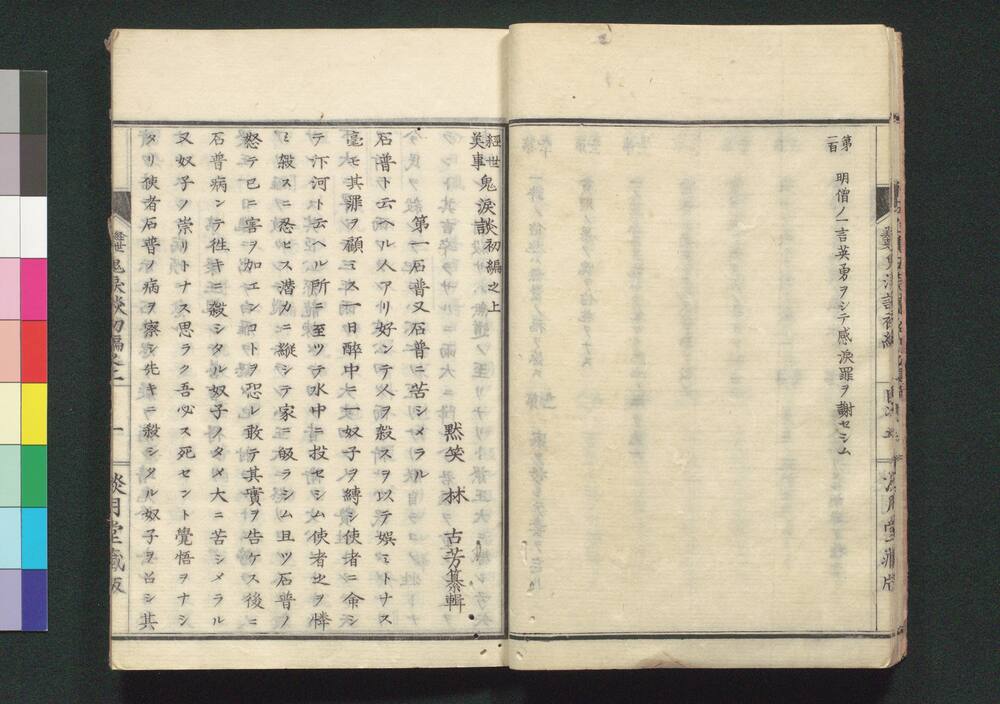 第一百 明僧ノ一言英勇ヲシテ感淚罪ヲ謝セシム
經世美事鬼淚談初編之上
默笑 林 古芳纂輯
第一石普又石普ニ苦シメラル
石普ト云ヘル人アリ好ンテ人ヲ殺スヲ以テ娯ミトナス
毫モ其罪ヲ顧ミス一日醉中ニ一奴子ヲ縛シ使者ニ命シ
テ汴河ト云ヘル所ニ至ツテ水中ニ投セシム使者之ヲ憐
ミ殺スニ忍ヒス潛カニ縱シテ家ニ皈ラシム且ツ石普ノ
怒テ已ニ害ヲ加エンコトヲ恐レ敢テ其實ヲ告ケス後ニ
石普病ンテ徃キニ殺シタル奴子ノタメ大ニ苦シメラル
又奴子ノ崇リトナス思ラク吾必ス死セント覺悟ヲナシ
タリ使者石普ノ病ヲ察シ先キニ殺シタル奴子ヲ召シ其
經世鬼淚談初編之上 一 淡月堂藏版